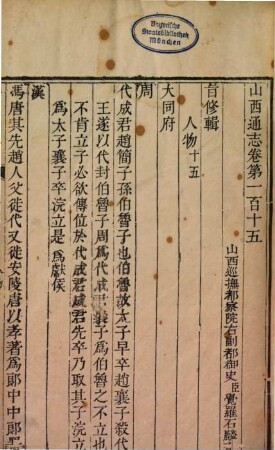 Bayerische
Staatsbibliothek
München
山西通志卷第一百十五
山西巡撫都察院右副都御史臣覺羅石麟
旨修輯
人物十五
大同府
周
代成君趙簡子孫伯魯子也伯魯故太子早卒趙襄子殺代
王遂以代封伯魯子周爲代成君襄子爲伯魯之不立也
不肯立子必欲傳位於代成君成君先卒乃取其子浣立
爲太子襄子卒浣立是爲獻侯
漢
馮唐其先趙人父徙代又徙安陵唐以孝著爲郎中郎署